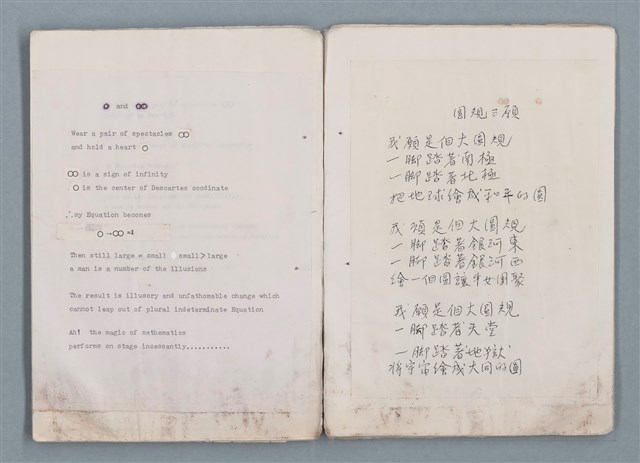 o and ∞
Wear a pair of spectacles ∞
and hold a heart o
∞ is a sign of infinity
o is the center of Descartes coodinate
∴my Equation becomes
o→∞ =1
Then still large = small small > large
a man is a number of the illusions
The result is illusory and unfathomable change which
cannot leap out of plural indeterminate Equation
Ah! the magic of mathematics
performs on stage incessantly...........
圓規三願
我願是個大圓規
一腳踏著南極
一腳踏著北極
把地球繪成和平的圓
我願是個大圓規
一腳踏著銀河東
一腳踏著銀河西
繪一個圓讓牛女團聚
我願是個大圓規
一腳踏著天堂
一腳踏著地獄
將宇宙繪成大同的圓